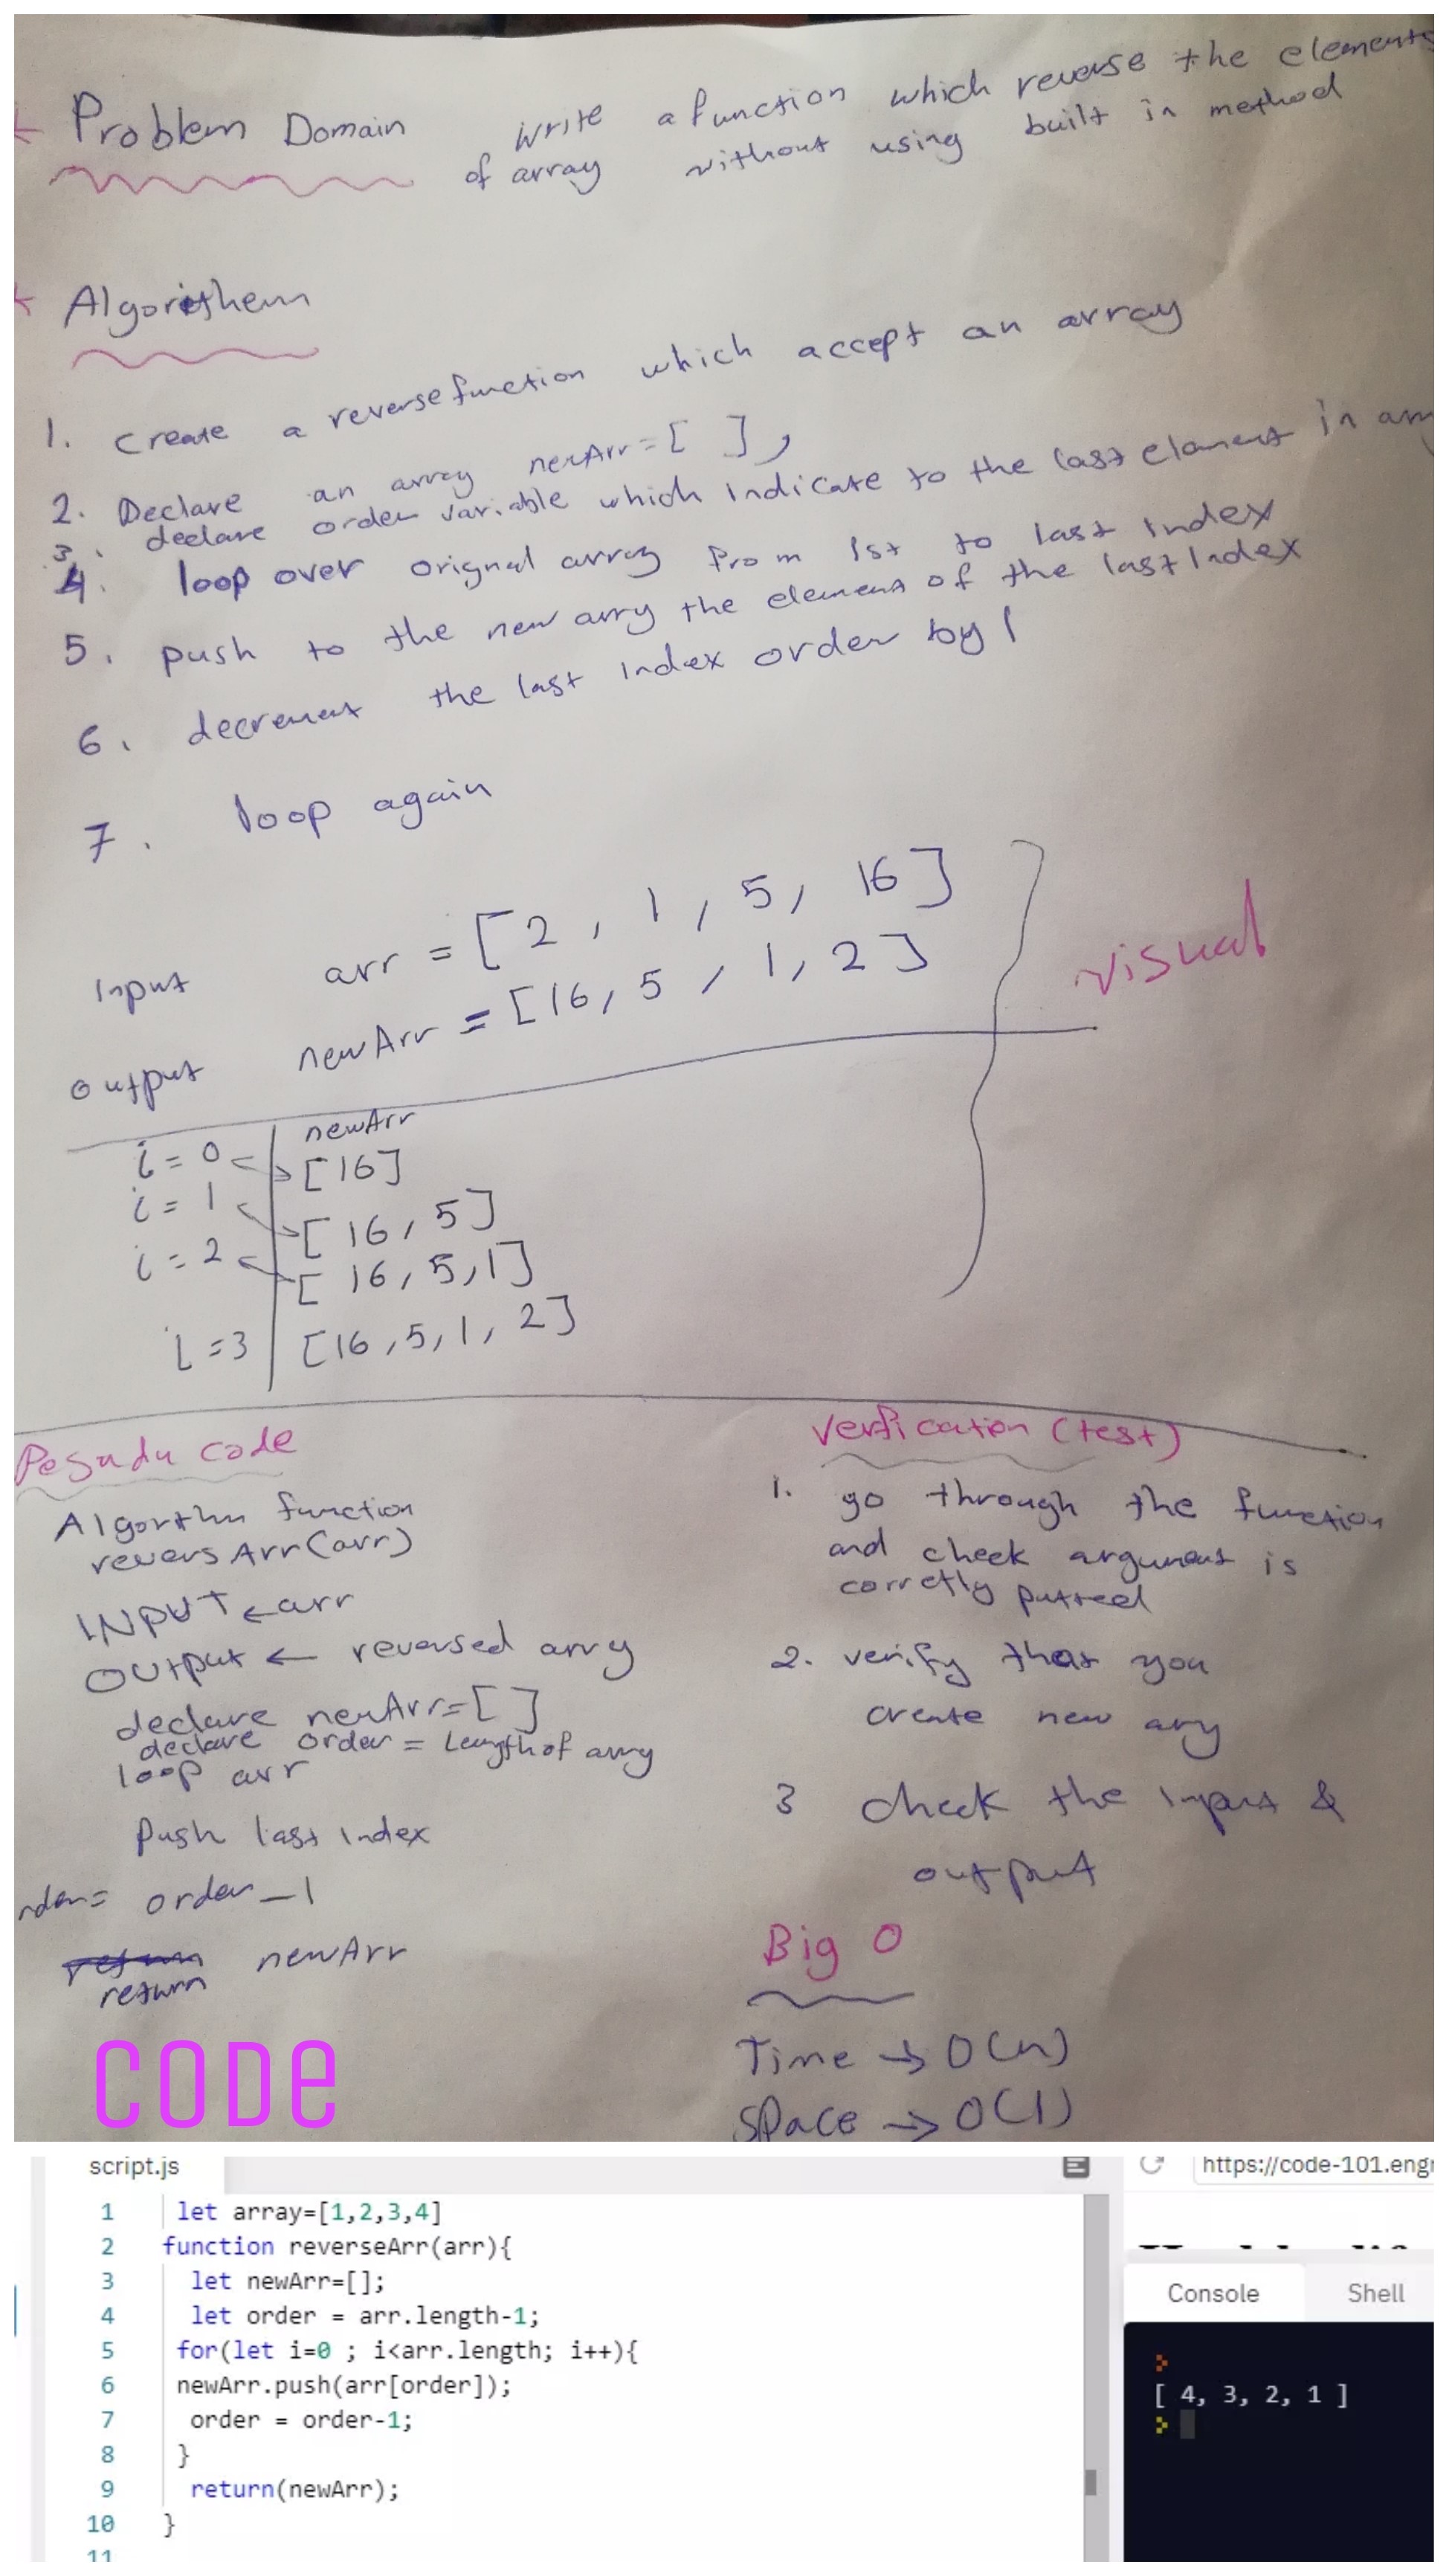 Problem Domain write a function which reverse the elements
of array without using built in method
Algorithem
1. Create a reverse function which accept an array
2. Declare an array newArr = [ ],
3. declare order variable which indicate to the last element in arr
4. loop over orignal array from 1st to last index
5. push to the new arry the element of the last index
6. decrement the last index order by 1
7. loop again
Input arr = [2, 1, 5, 16]
output newArr = [16, 5, 1, 2]
visual
newArr
i = 0 [16]
i = 1 [16, 5]
i = 2 [16, 5, 1]
i = 3 [16, 5, 1, 2]
Pesudu code
Algorthm function
revers Arr(arr)
INPUT ← arr
OUtput ← reversed arry
declare newArr = [ ]
declare order = Length of arry
loop arr
Push last index
rder = order - 1
return newArr
return
Verfication (test)
1. go through the function
and check argument is
corretly putted
2. verify that you
create new arry
3 check the input &
output
Big O
Time → O(n)
Space → O(1)
CODe
script.js
1 let array=[1,2,3,4]
2 function reverseArr(arr){
3 let newArr=[];
4 let order = arr.length-1;
5 for(let i=0 ; i<arr.length; i++){
6 newArr.push(arr[order]);
7 order = order-1;
8 }
9 return(newArr);
10 }
11
https://code-101.engr
Console Shell
[ 4, 3, 2, 1 ]